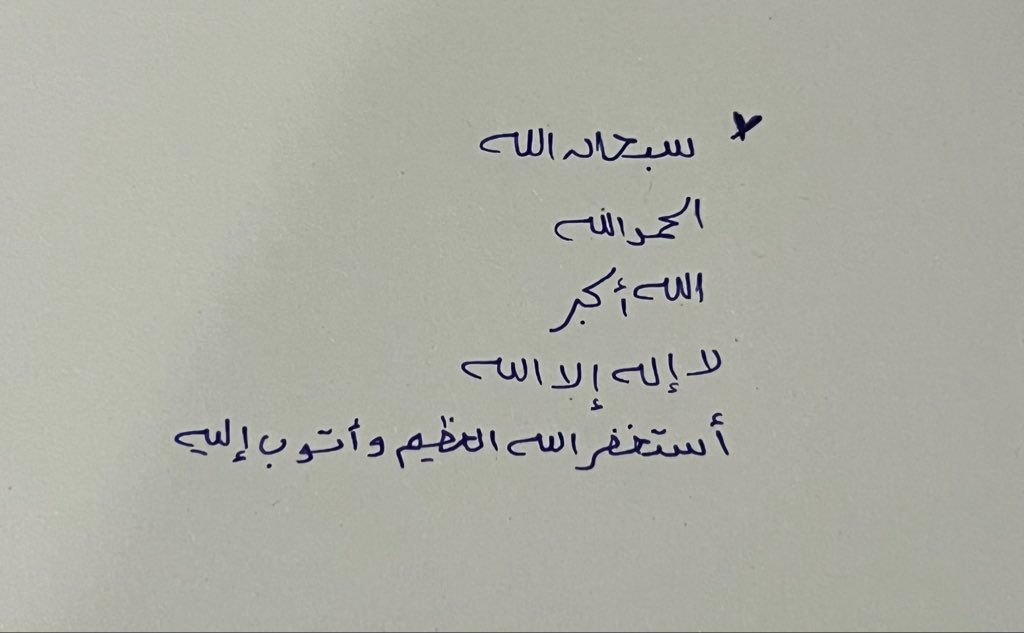 * سبحان الله
الحمدالله
الله أكبر
لا إله إلا الله
أستغفر الله العظيم وأتوب إليه